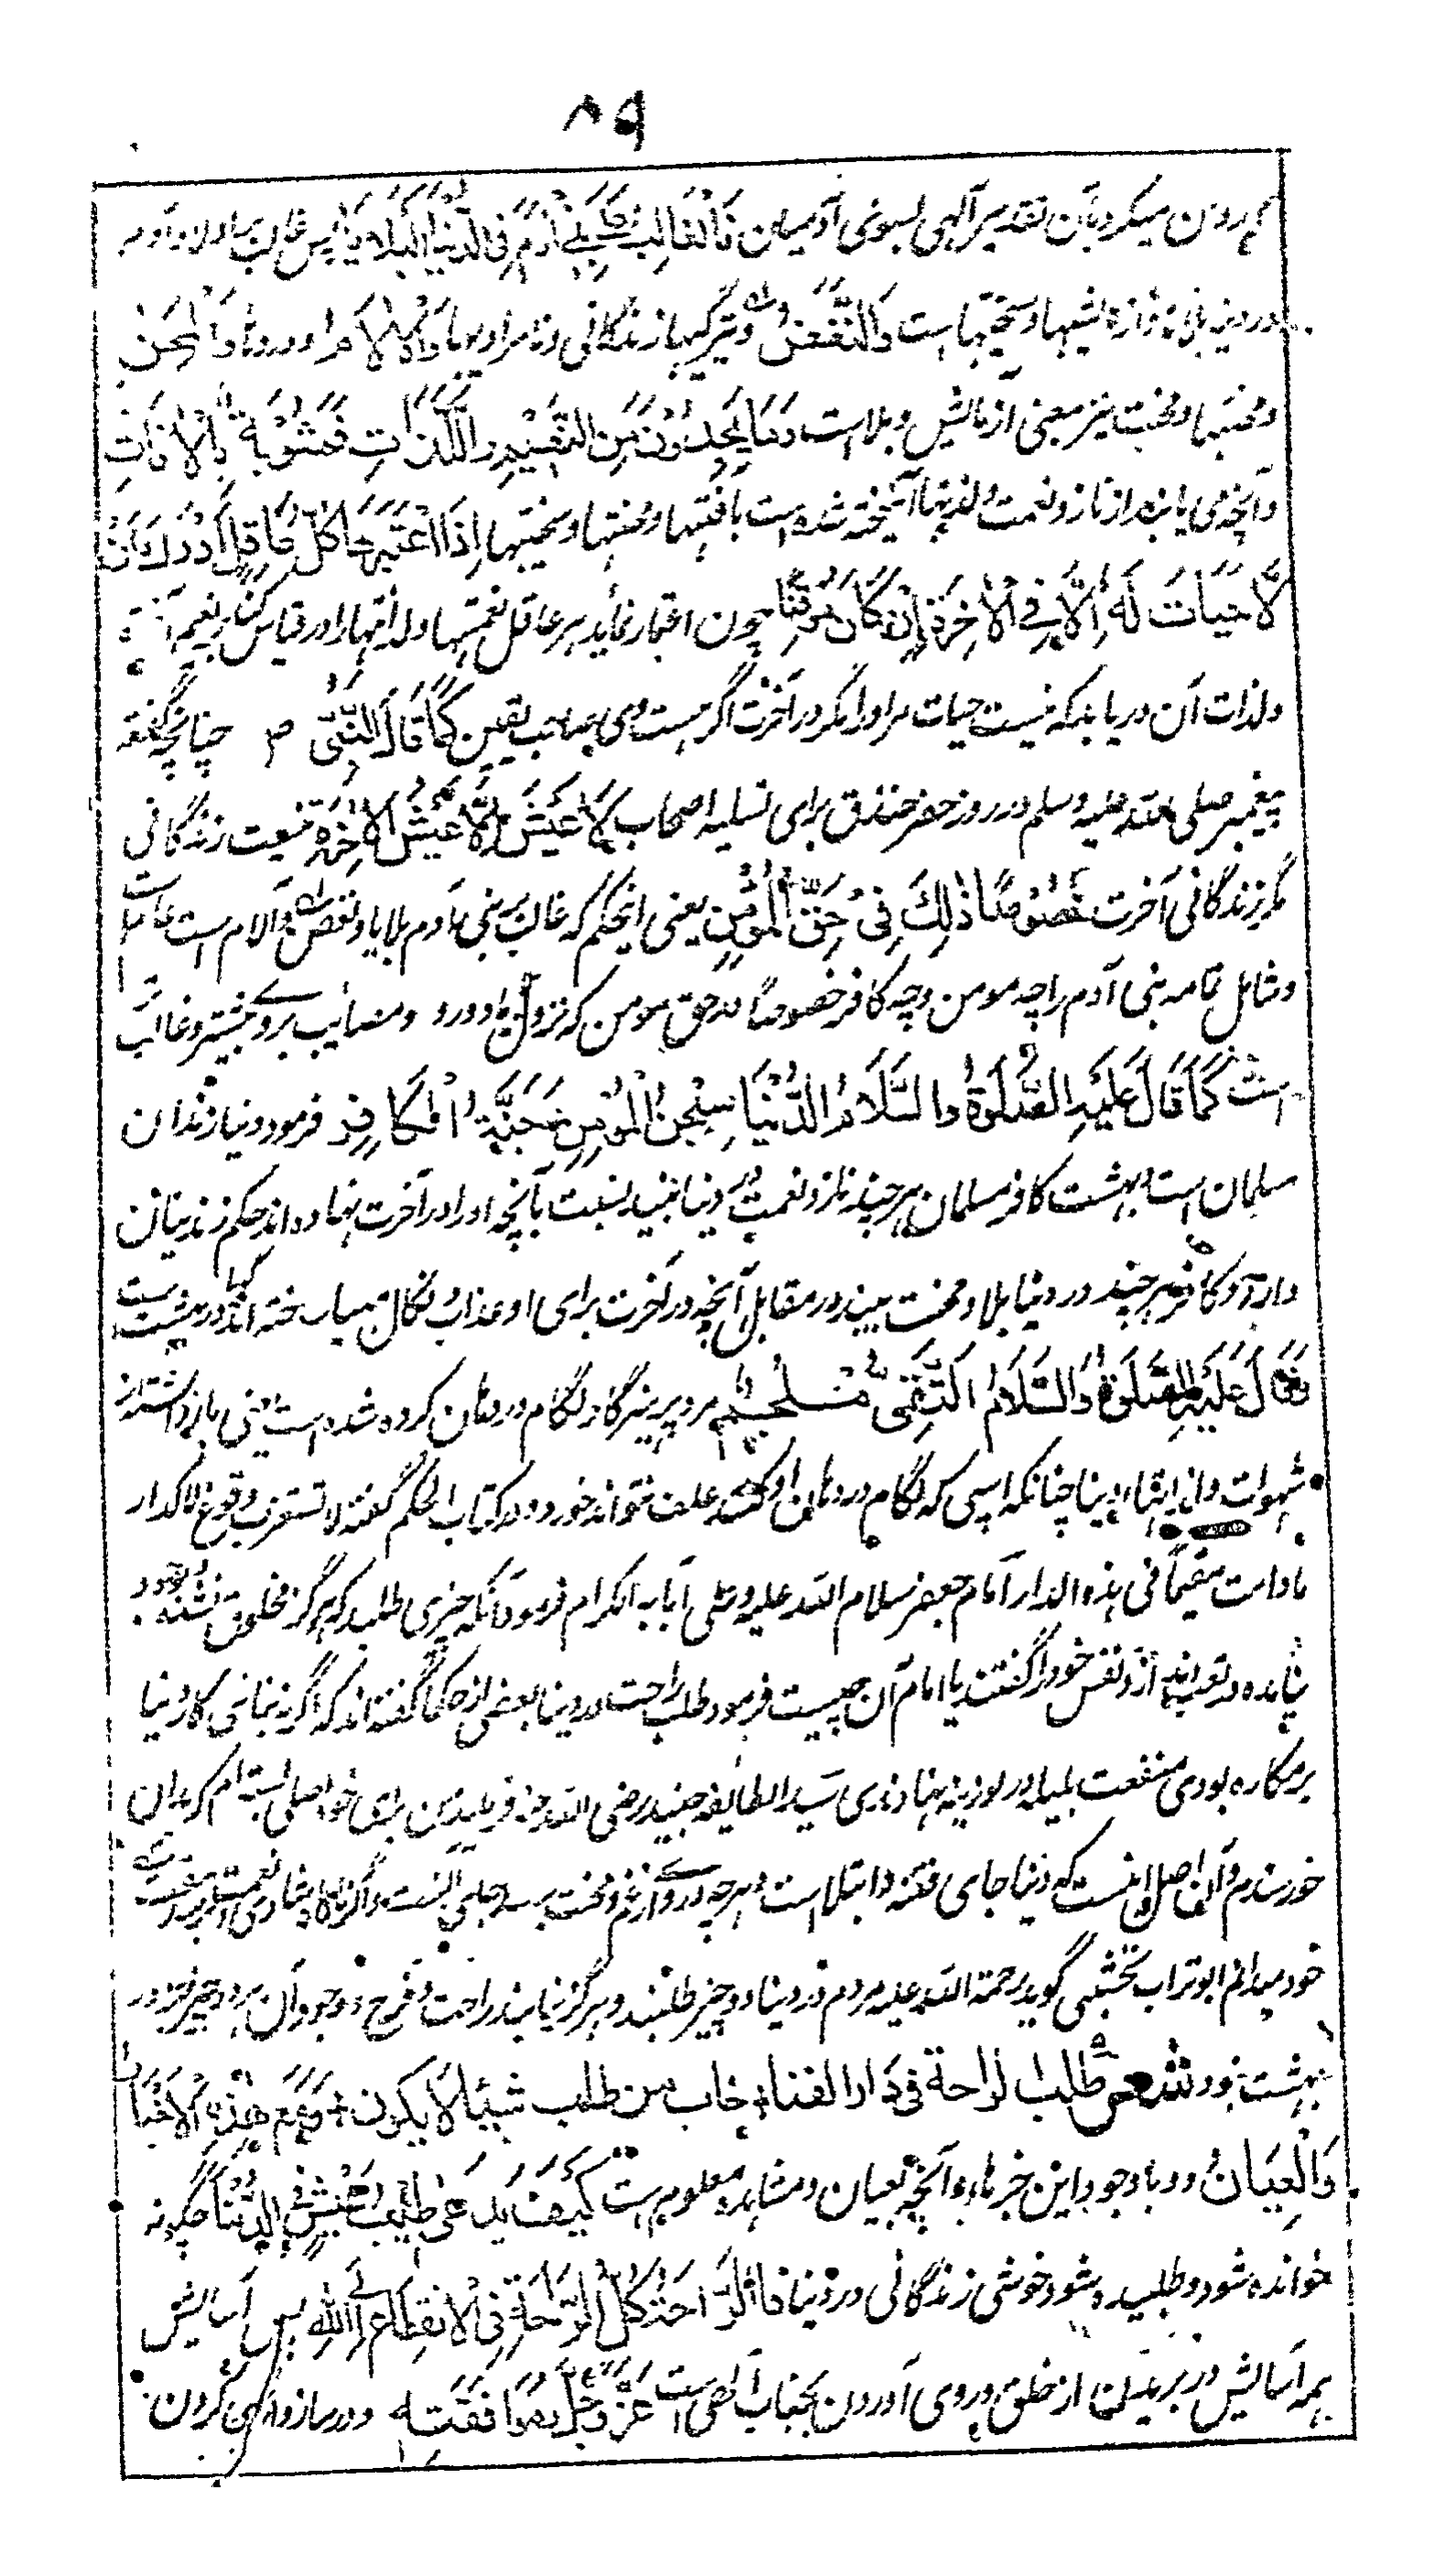 ۸۹
میکرد بآن تقدیر آلهی بسوی آدمیان فالغالب علی بنی آدم فی الدنیا البلایا پس غالب بر اولاد آدم
بلاها و اندیشیها و سختیها است والتنغص و تیرگیها زندگانی و نامرادیها والآلام و دردها والمحن
و محنتها و محنت نیز معنی آزمایش و بلا است وما یجدون من النعیم واللذات فمشوبة بالآفات
و آنچه می یابند از ناز و نعمت و لذتها آمیخته شده است بآفتها و محنتها و سختیها اذا اعتبرها کل عاقل ادرک ان
لا حیات له الا فی الآخرة ان کان موقنا چون اعتبار نماید هر عاقل نعمتها و لذتها را و قیاس کند
ولذات آن دریابد که نیست حیات مر او را مگر در آخرت اگر هست وی صاحب یقین کما قال النبی ص چنانچه گفته
پیغمبر صلی الله علیه وسلم در روز حفر خندق برای تسلیه اصحاب لا عیش الا عیش الآخرة نیست زندگانی
مگر زندگانی آخرت خصوصا ذلک فی حق المؤمن یعنی اینحکم که غالب بر بنی آدم بلایا و تنغص و آلام است عام است
و شامل تمامه بنی آدم را چه مومن و چه کافر خصوصاً در حق مومن که نزول بلا و درد و مصائب بروے بیشتر و غالب تر
است کما قال علیه الصلوة والسلام الدنیا سجن المؤمن وجنة الکافر فرمود دنیا زندان
مسلمان است و بهشت کافر مسلمان هر چند ناز و نعمت در دنیا بیند نسبت بآنچه او را در آخرت نهاده اند حکم زندان
دارد و کافر هر چند در دنیا بلا و محنت بیند در مقابل آنچه در آخرت برای او عذاب و نکال مهیا ساخته اند گویا در بهشت است
وقال علیه الصلوة والسلام التقی ملجم مرد پرهیزگار لگام در دهان کرده شده است یعنی باز داشته از
شهوات و لذات دنیا چنانکه اسپی که لگام در دهان او کنند علف نتواند خورد و در کتاب الحکم گفته لا تستغرب وقوع الاکدار
ما دامت مقیماً فی هذه الدار امام جعفر سلام الله علیه و علی آبائه الکرام فرمود آنکه چیزی طلبد که هرگز مخلوق نشده بود
نیابد و در تعب اندازد نفس خود را گفتند یا امام آن چیست فرمود طلب راحت در دنیا بعضی از حکما گفته اند که اگر نه بنای کار دنیا
بر مکاره بودی منفعت بلیله در لوزینه نهادندی سید الطایفه جنید رضی الله عنه فرماید من برای خود اصلی بسته ام که بدان
خورسندم و آن اصل اینست که دنیا جای فتنه و ابتلا است و هر چه دروے از غم و محنت برسد جبلی اوست و اگر ناگاه شادی و نعمت رسد
خود میدانم ابو تراب نخشبی گوید رحمة الله علیه مردم در دنیا دو چیز طلبند و هرگز نیابند راحت و فرح و وجود آن هر دو چیز جز در
بهشت نبود شعر طلب الراحة فی دار الفناء خاب من طلب شیئا لا یکون ومع هذه الاخبار
والعیان و با وجود این خبرها و آنچه بعیان و مشاهده معلوم است کیف یدعی طیب عیش فی الدنیا چگونه
خوانده شود و طلبیده شود خوشی زندگانی در دنیا فالراحة کل الراحة فی الانقطاع الی الله پس آسایش
همه آسایش در بریدن از خلق و روی آوردن بجناب الهی است عز وجل بموافقته و در سازواری کردن